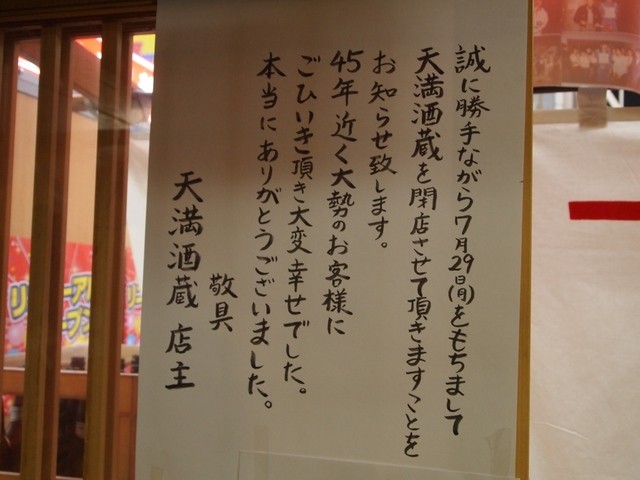 誠に勝手ながら7月29日(月)をもちまして
天満酒蔵を閉店させて頂きますことを
お知らせ致します。
45年近く大勢のお客様に
ごひいき頂き大変幸せでした。
本当にありがとうございました。
敬具
天満酒蔵 店主